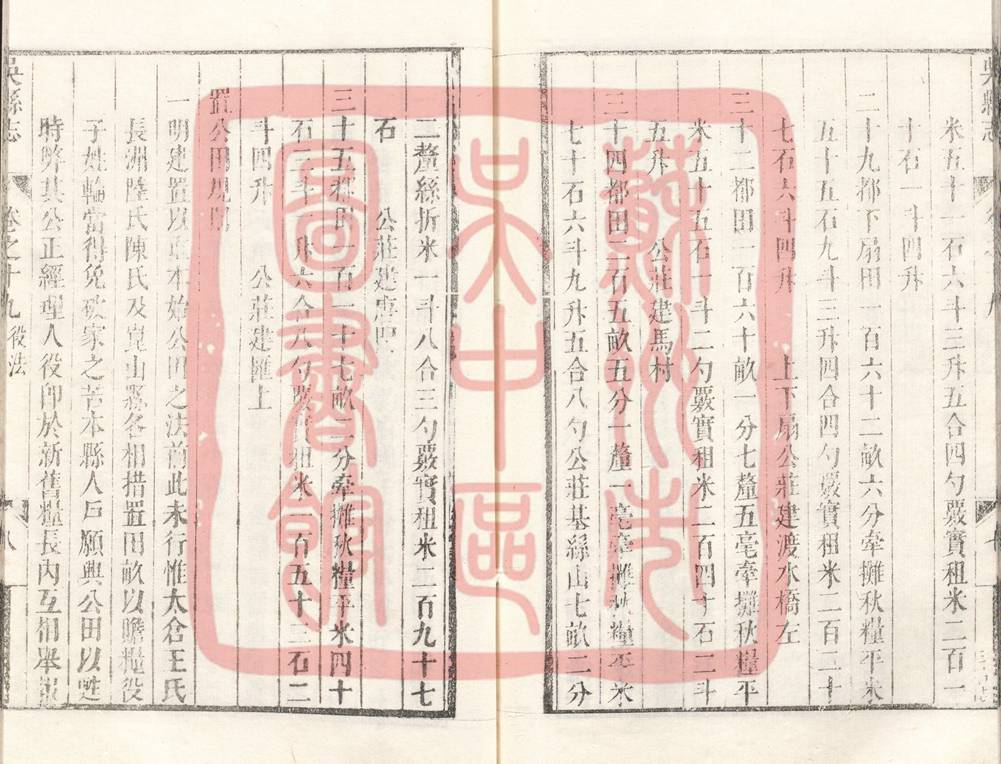 吳縣志
米五十一石六斗三升五合四勺覈實租米二百一
十石一斗四升
二十九都下扇田一百六十二畝六分牽攤秋糧平米
五十五石九斗三升四合四勺覈實租米二百二十
七石六斗四升 上下扇公莊建渡水橋左
三十二都田一百六十畝一分七釐五毫牽攤秋糧平
米五十五石一斗二勺覈實租米二百四十石二斗
五升 公莊建馬村
三十四都田二百五畝五分一釐一毫牽攤秋糧平米
七十石六斗九升五合八勺公莊基絲山七畝二分
二釐絲折米一斗八合三勺覈實租米二百九十七
石 公莊建
三十五都田一百一十七畝二分牽攤秋糧平米四十
石三斗 升六合八勺覈實租米一百五十三石二
斗四升 公莊建匯上
置公田規
一明建置以 本始公田之法前此未行惟太倉王氏
長洲陸氏陳氏及崑山縣各相措置田畝以贍糧役
子姓輪當得免破家之苦本縣人戶願與公田以甦
時弊其公正經理人役卽於新舊糧長內互相舉報
吳縣志
卷之十九 役法
八
蘇州市
吳中區
圖書館